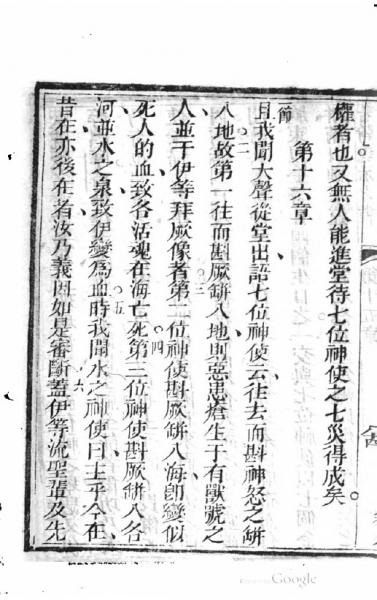 權者也又無人能進堂待七位神使之七災得成矣
第十六章
節
且我聞大聲從堂出語七位神使云徃去而斟神怒之缾
二
入地故第一徃而斟厥缾入地則惡患瘡生于有獸號之
三
人並于伊等拜厥像者第二位神使斟厥缾入海卽變似
四
死人的血致各活魂在海亡死第三位神使斟厥缾入各
五
河並水之泉致伊變為血時我聞水之神使曰主乎今在
六
昔在亦後在者汝乃義因如是審斷蓋伊等流聖輩及先
Google